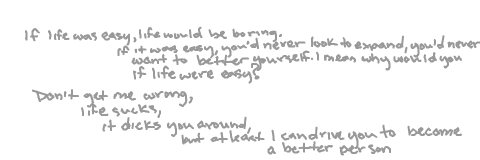 If life was easy, life would be boring.
If it was easy, you'd never look to expand, you'd never
want to better yourself. I mean why would you
if life were easy?
Don't get me wrong,
life sucks,
it dicks you around,
but at least I can drive you to become
a better person